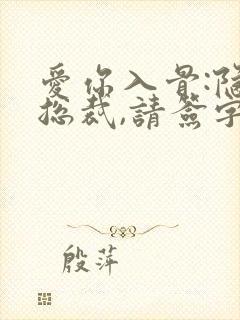 愛你入骨:隱
總裁,請簽字
殷萍